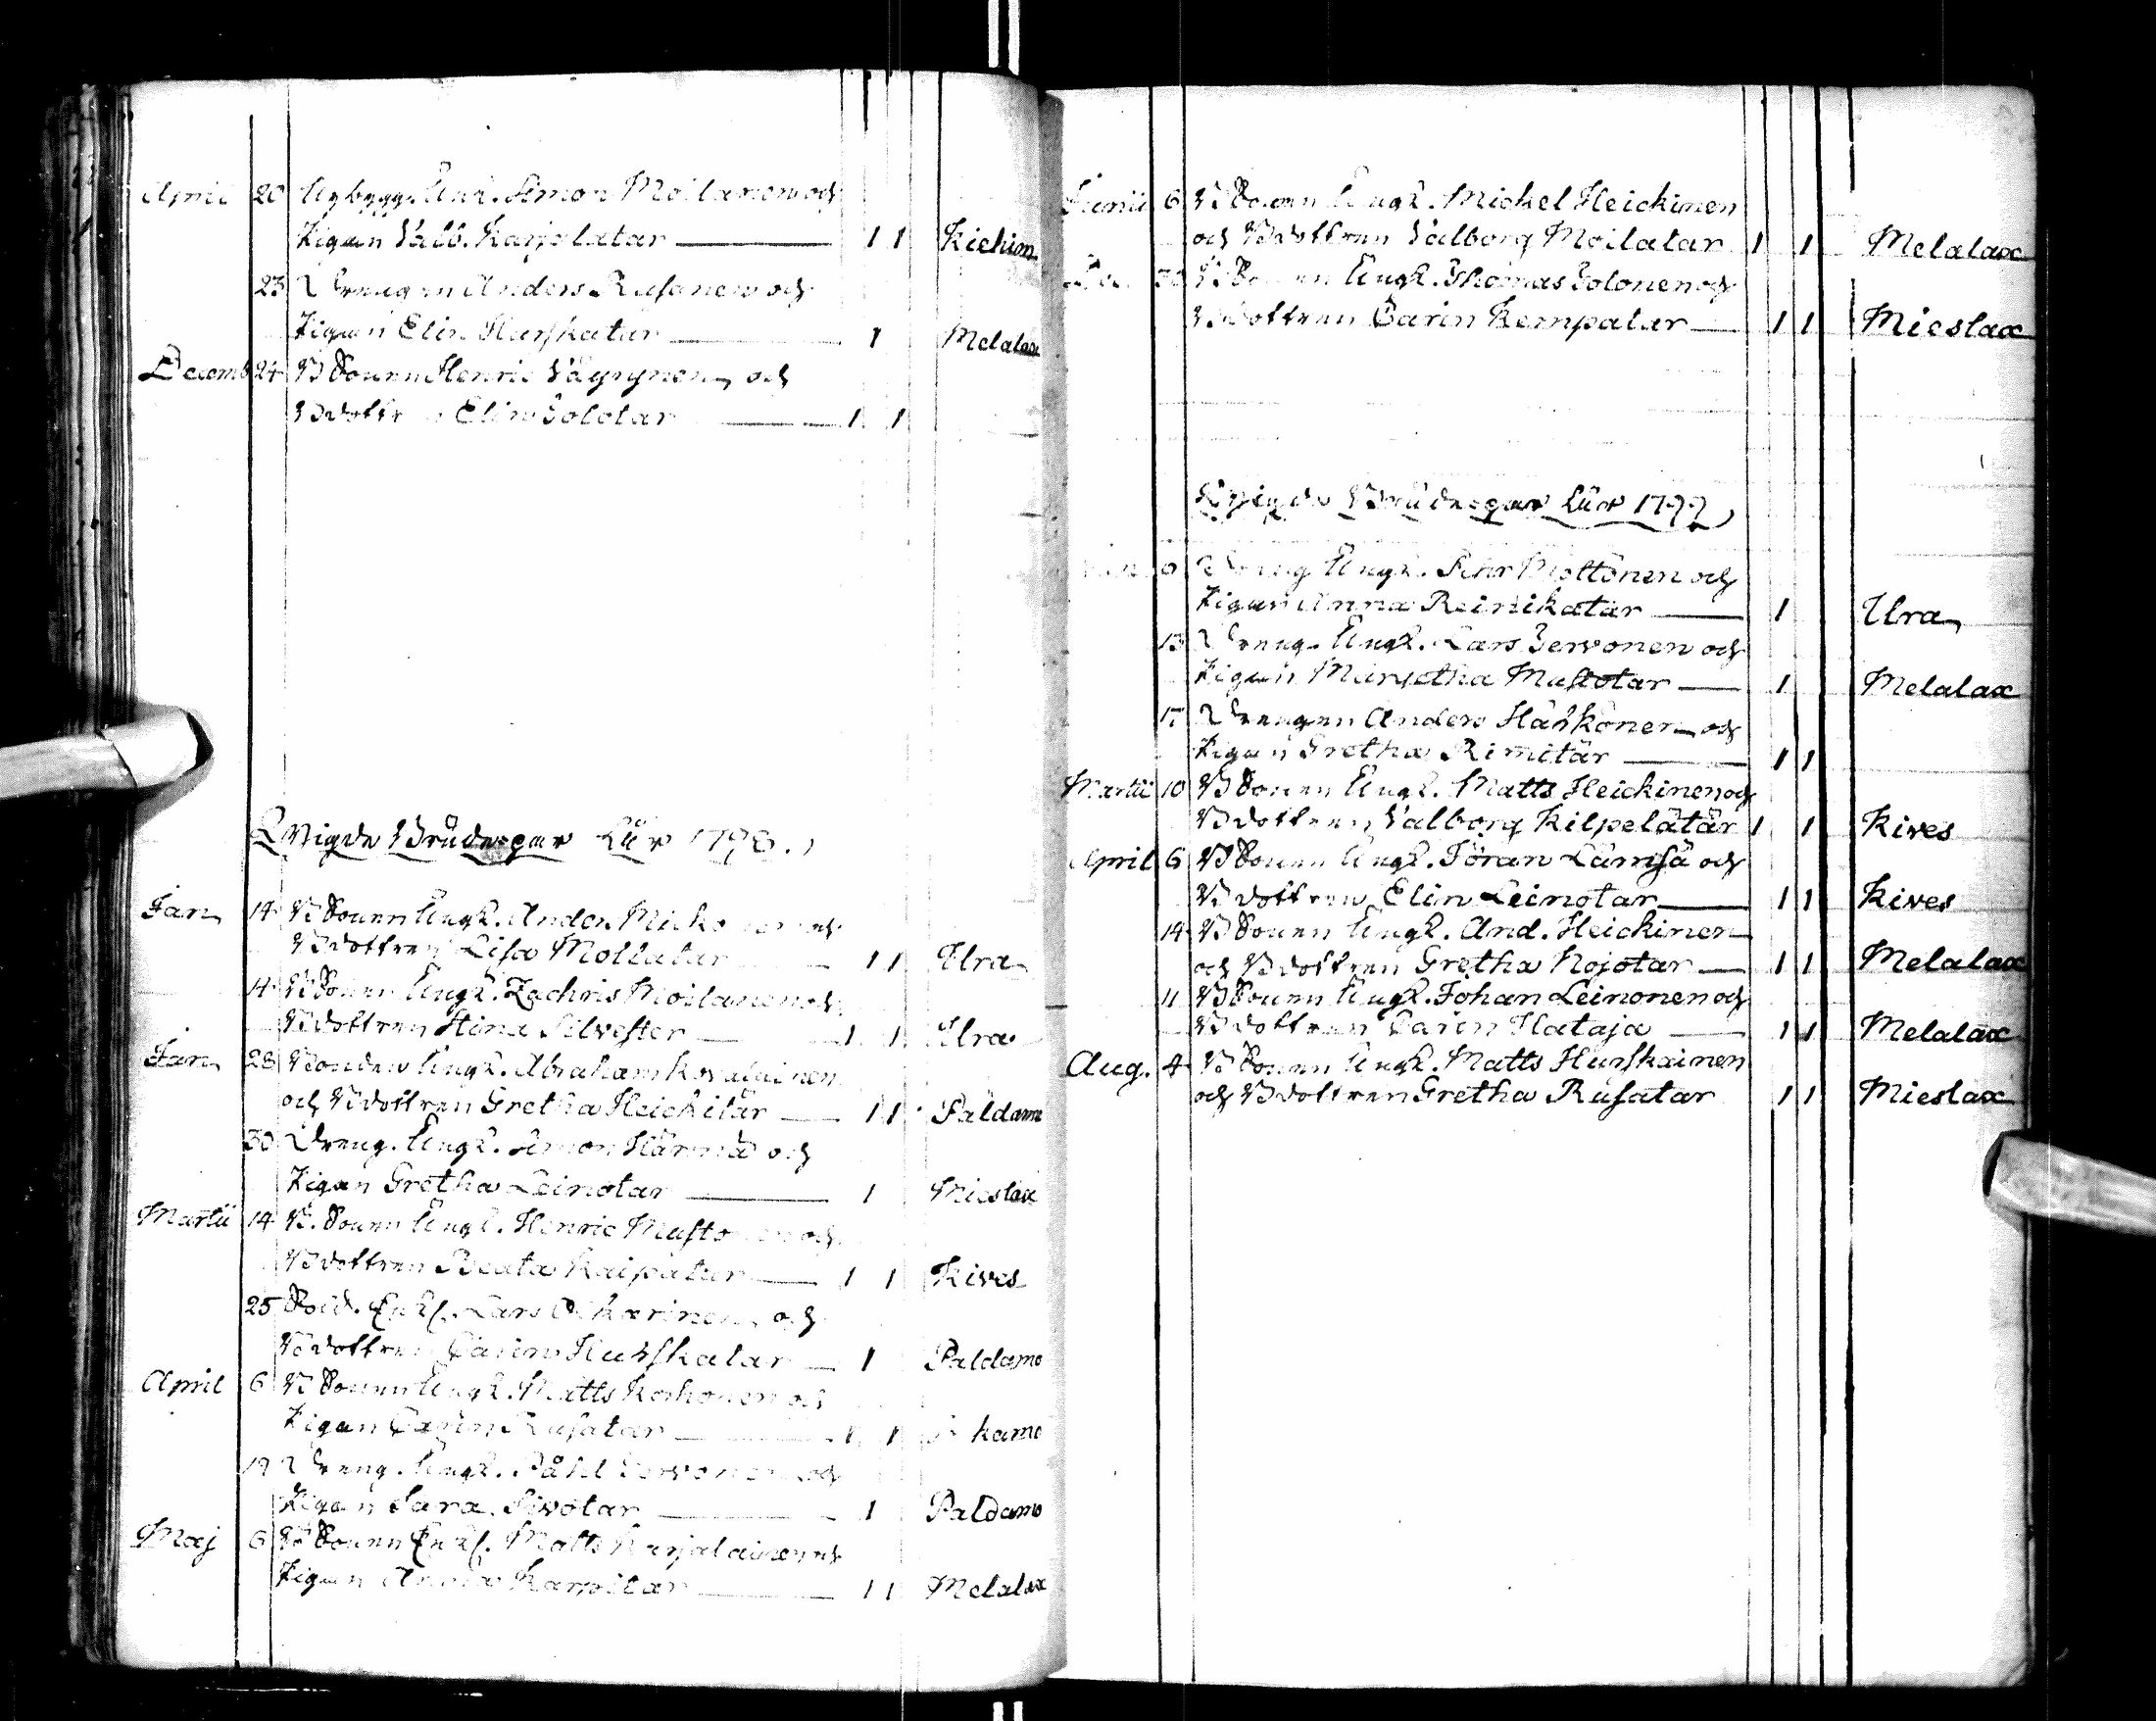 April 20 Nybygg. Ungk. Simon Moilanen och
Pigan Valb. Karjalatar 1 1 Kiehim
23 Drengen Anders Rusanen och
Pigan Elin Hurskatar 1 Melalax
Decemb 24 B Sonen Henric Väyrynen och
B dottren Elin Tolotar 1 1
Wigde Brude-par Åhr 1798.
Jan 14 B Sonen Ungk. Anders och
B dottren Lisa Mollatar 1 1 Ura
14 B Sonen Ungk. Zachris Moilanen och
B dottren Stina Silvester 1 1 Ura
Jan 28 Bonden Ungk. Abraham Kovalainen
och B dottren Gretha Heickitär 1 1 Paldamo
30 Dreng. Ungk. Simon Härmä och
Pigan Gretha Leinotar 1 Mieslax
Martii 14 B. Sonen Ungk. Henric Mustonen och
B dottren Beata Kaipatar 1 1 Kives
25 Sold. Enkl. Lars Okkarinen och
B dottren Carin Hurskatar 1 Paldamo
April 6 B Sonen Ungk. Matts Korhonen och
Pigan Carin Rusatar 1 1 kamo
19 Dreng. Ungk. Påhl Servonen och
Pigan Sara Sivotar 1 Paldamo
Maj 6 B Sonen Enkl. Matts Karjalainen och
Pigan Anna 1 1 Melalax
Junii 6 B Sonen Ungk. Mickel Heickinen
och B dottren Valborg Moilatar 1 1 Melalax
B Sonen Ungk. Thomas Tolonen och
B dottren Carin Kempatar 1 1 Mieslax
Wigde Brude-par Åhr 1799
Dreng Ungk. Petter Mottönen och
Pigan Anna Reinikatar 1 Ura
13 Dreng. Ungk. Lars Servonen och
Pigan Margetha Mustotar 1 Melalax
17 Drengen Anders Härkönen och
Pigan Gretha Rimitär 1 1
Martii 10 B Sonen Ungk. Matts Heickinen och
B dottren Valborg Kilpelätär 1 1 Kives
April 6 B Sonen Ungk. Jöran Lämsä och
B dottren Elin Leinotar 1 1 Kives
14 B Sonen Ungk. And. Heickinen
och B dottren Gretha Nojotar 1 1 Melalax
11 B Sonen Ungk. Johan Leinonen och
B dottren Carin Hataja 1 1 Melalax
Aug. 4 B Sonen Ungk. Matts Hurskainen
och B dottren Gretha Rusatar 1 1 Mieslax